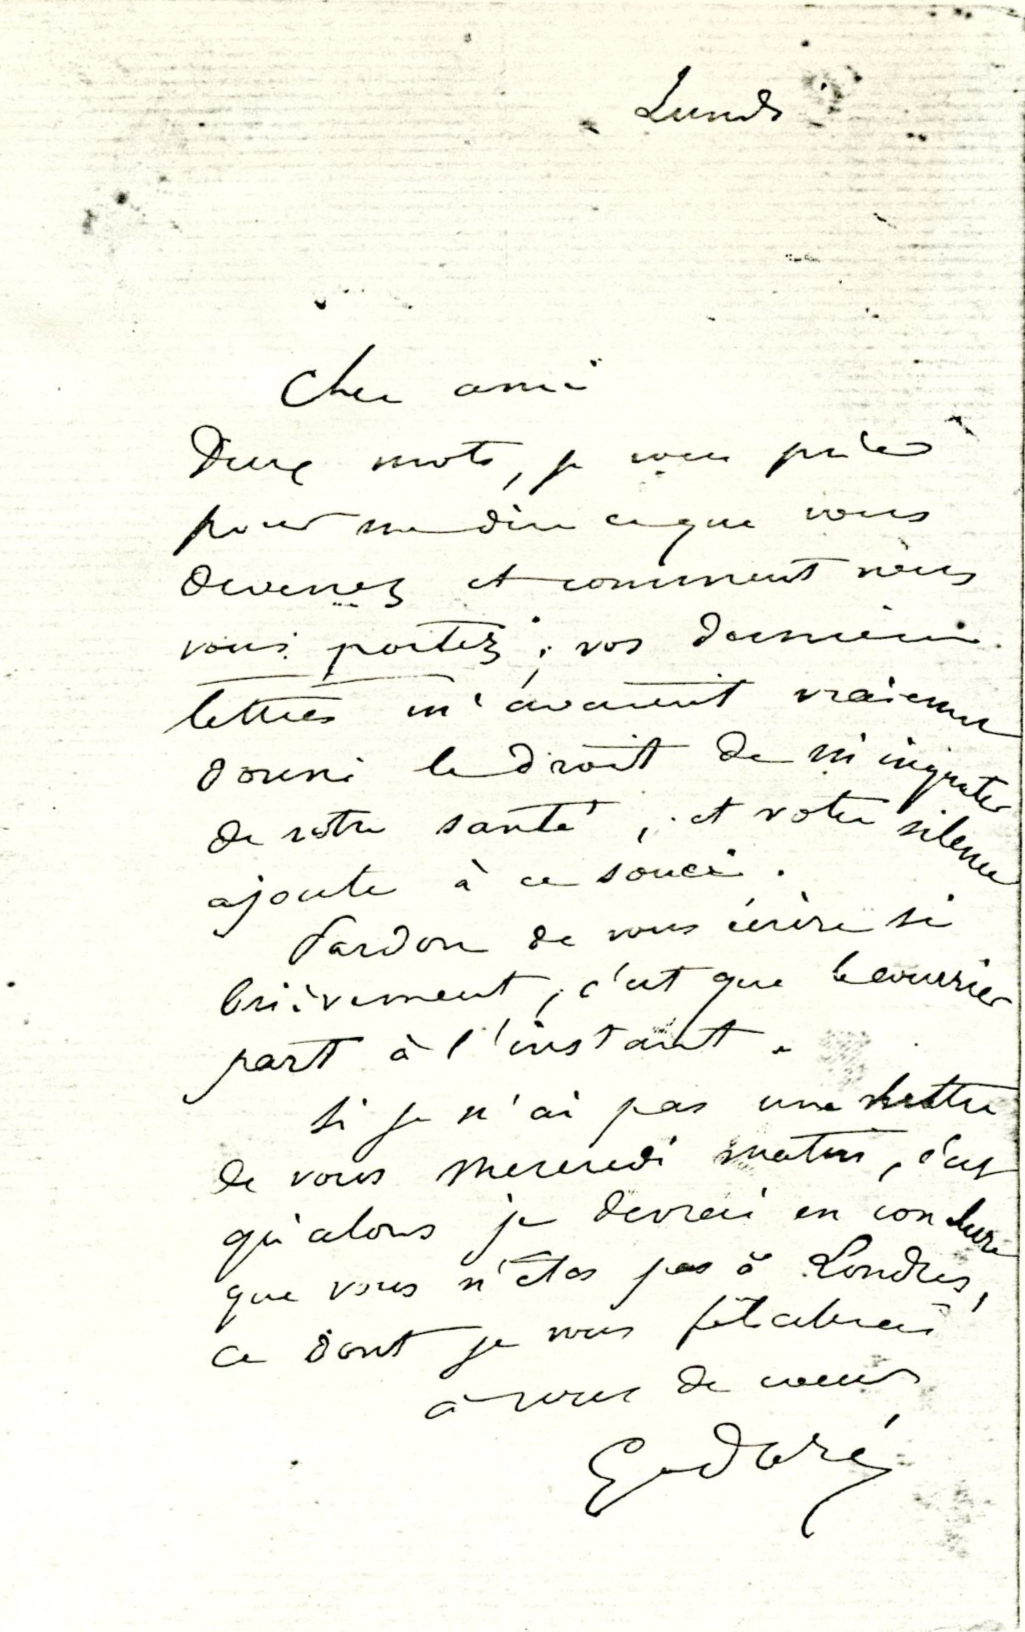 Lundi
Cher ami
Deux mots, je vous prie
pour me dire ce que vous
devenez et comment vous
vous portez ; vos dernières
lettres m'avaient vraiment
donné le droit de m'inquiéter
de votre santé, et votre silence
ajoute à ce souci.
Pardon de vous écrire si
brièvement, c'est que le courrier
part à l'instant.
Si je n'ai pas une lettre
de vous Mercredi matin, c'est
qu'alors je devrai en conclure
que vous n'êtes pas à Londres,
ce dont je vous féliciterai
à vous de cœur
G Doré